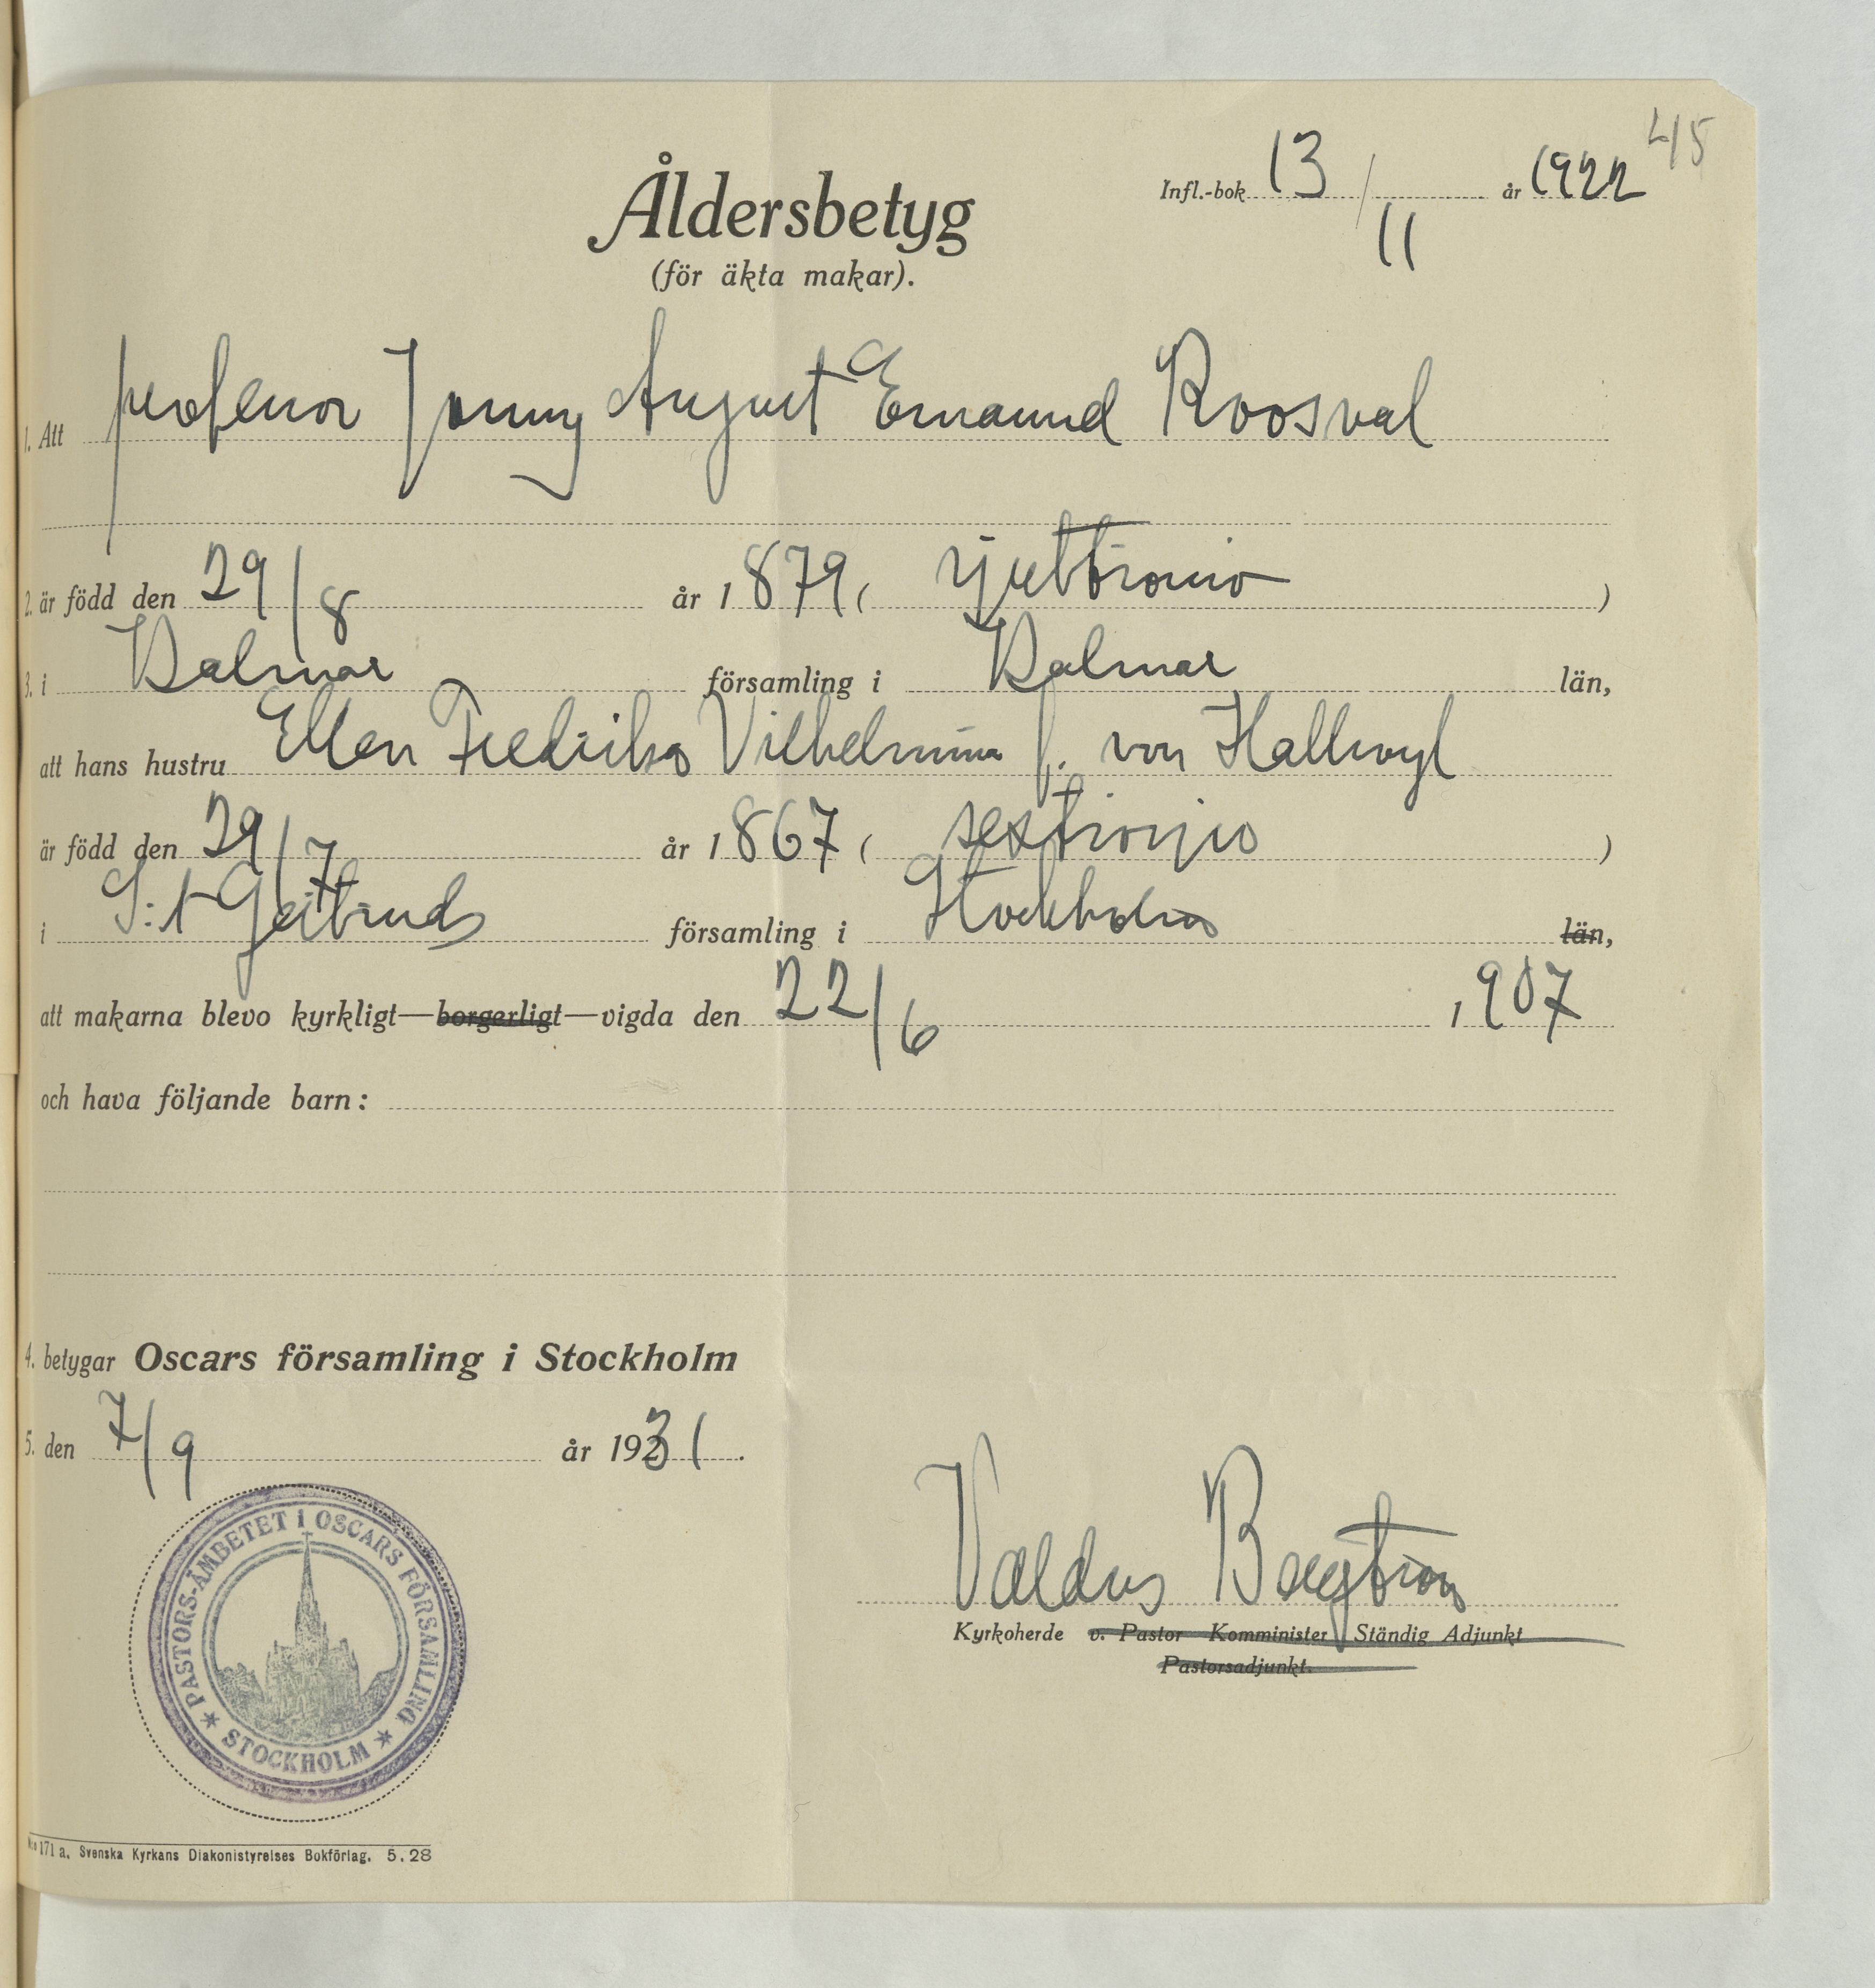 45
Infl.-bok 13 / 11 år 1922
Åldersbetyg
(för äkta makar).
1. Att professor Jonny August Emanuel Roosval
2. är född den 29/8 år 1879 ( sjuttionio )
3. i Kalmar församling i Kalmar län,
att hans hustru Ellen Fredrika Vilhelmina f. von Hallwyl
är född den 29/7 år 1867 ( sextiosju )
i S:t Gertruds församling i Stockholm län,
att makarna blevo kyrkligt—borgerligt—vigda den 22/6 1907
och hava följande barn:
4. betygar Oscars församling i Stockholm
5. den 7/9 år 1931.
PASTORS-ÄMBETET I OSCARS FÖRSAMLING
STOCKHOLM
Valdus Bengtson
Kyrkoherde v. Pastor Komminister Ständig Adjunkt
Pastorsadjunkt.
N:o 171 a. Svenska Kyrkans Diakonistyrelses Bokförlag. 5.28